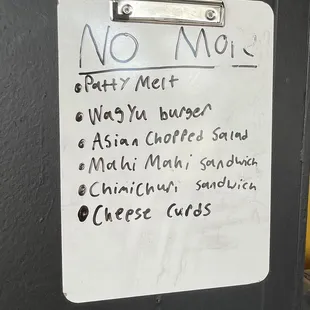 No More
• Patty Melt
• Wagyu burger
• Asian Chopped Salad
• Mahi Mahi sandwich
• Chimichuri sandwich
• Cheese Curds